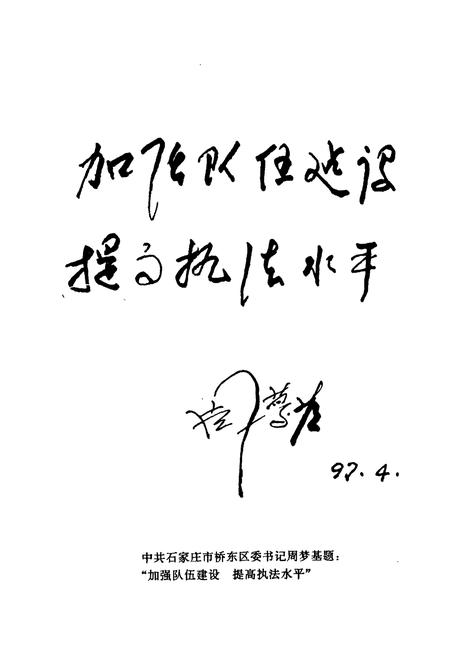 加强队伍建设
提高执法水平
周梦基
97.4.
中共石家庄市桥东区委书记周梦基题：
“加强队伍建设　提高执法水平”